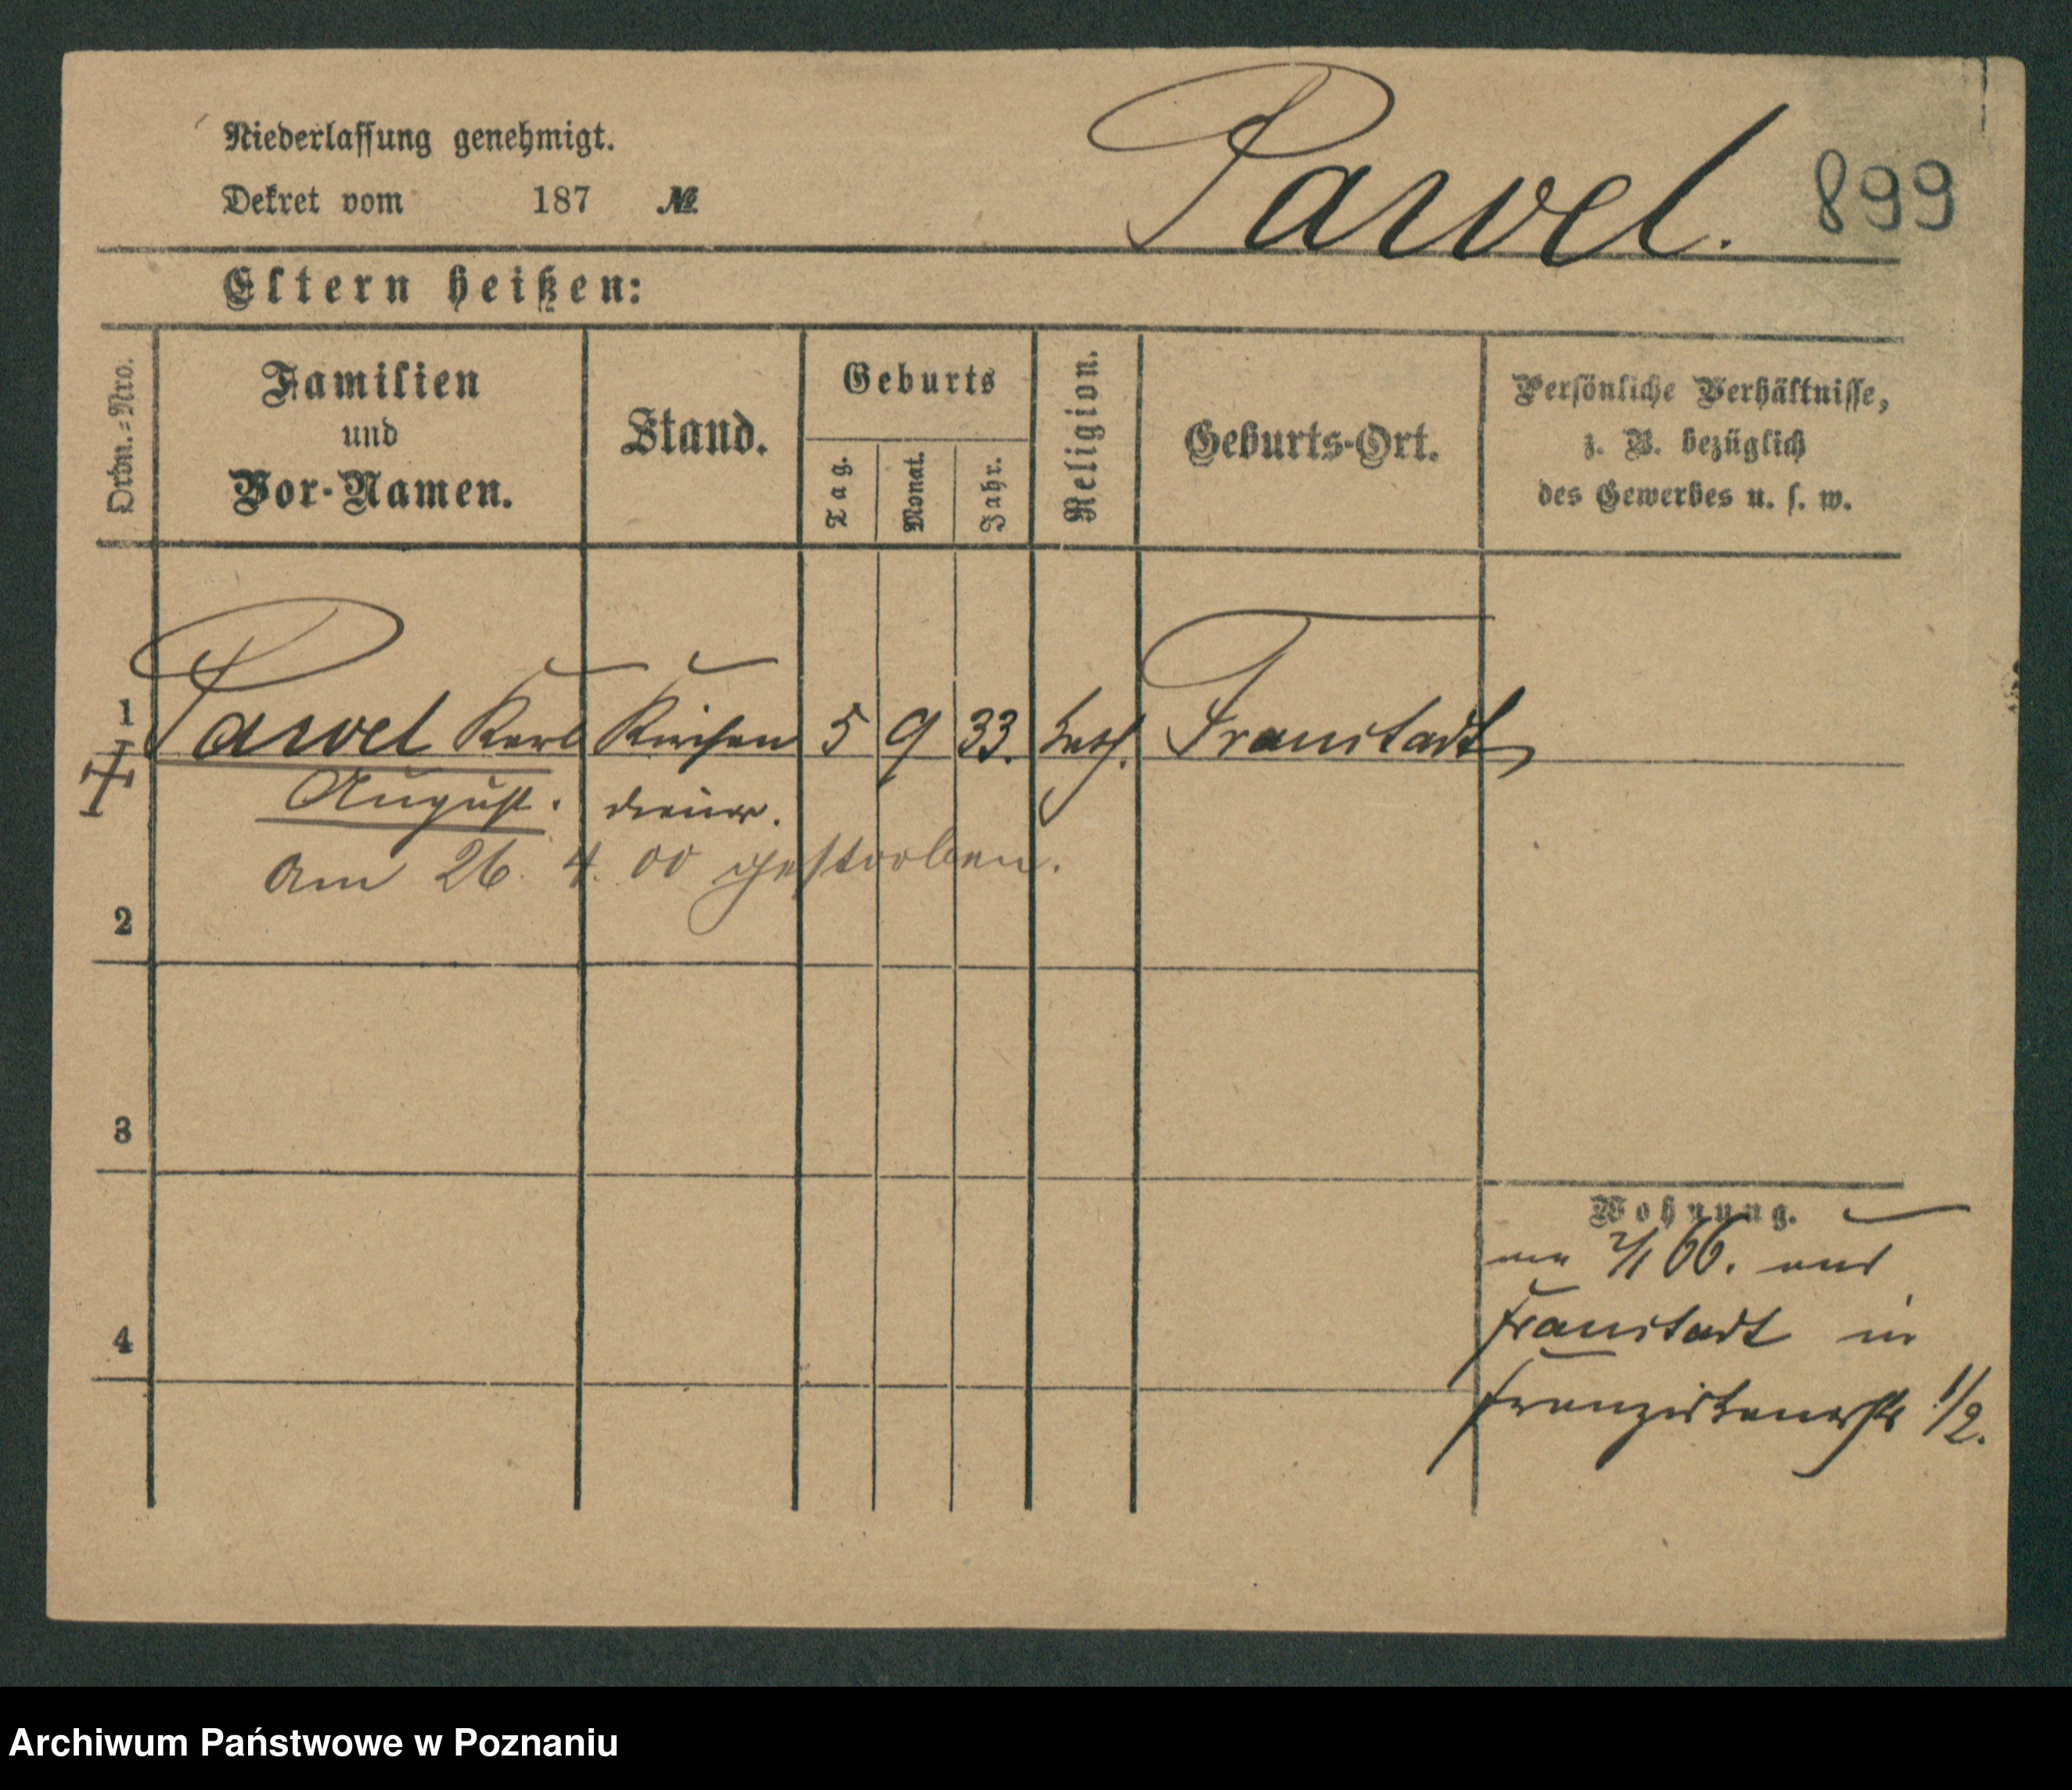 Niederlassung genehmigt.
Dekret vom 187 №
Pawel. 899
Eltern heißen:
Ordn.=Nro.
Familien
und
Vor-Namen.
Stand.
Geburts
Tag.
Monat.
Jahr.
Religion.
Geburts-Ort.
Persönliche Verhältnisse,
z. B. bezüglich
des Gewerbes u. s. w.
1 Pawel Karl Kirchen 5 9 33. Fraustadt
August. diener.
am 26. 4. 00 gestorben.
2
3
4
Wohnung.
66. aus
Fraustadt in
Franziskanerstr 1/2.
Archiwum Państwowe w Poznaniu